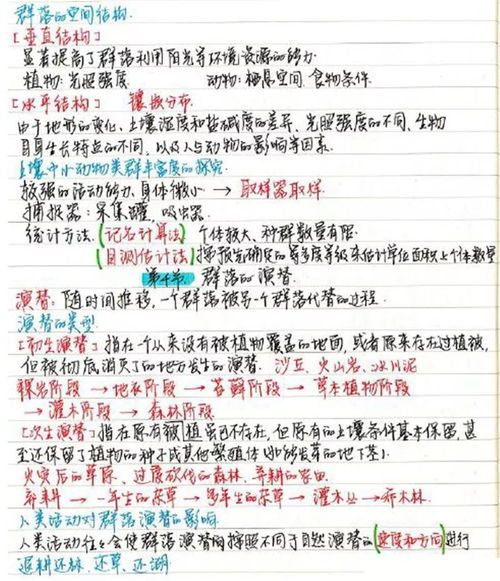 群落的空间结构.
[垂直结构]
显著提高了群落利用阳光等环境资源的能力
植物:光照强度 动物:栖息空间.食物条件.
[水平结构] 镶嵌分布.
由于地形的变化、土壤湿度和盐碱度的差异、光照强度的不同、生物
自身生长特点的不同,以及人与动物的影响等因素.
土壤中小动物类群丰富度的探究.
较强的活动能力.身体微小 → 取样器取样.
捕捉器:采集罐,吸虫器.
统计方法.(记名计算法) 个体较大、种群数量有限.
(目测估计法) 按预先确定的等级来估计单位面积上个体数量
第4节. 群落的演替.
演替:随时间推移,一个群落被另一个群落代替的过程.
演替的类型.
[初生演替]指在一个从来没有被植物覆盖的地面,或者原来存在过植被,
但被彻底消灭了的地方发生的演替. 沙丘、火山岩、冰川泥
裸岩阶段 → 地衣阶段 → 苔藓阶段 → 草本植物阶段
→ 灌木阶段 → 森林阶段
[次生演替]指在原有植被虽已不存在,但原有的土壤条件基本保留,甚
至还保留了植物的种子或其他繁殖体(如能发芽的地下茎).
火灾后的草原、过度砍伐的森林、弃耕的农田.
弃耕 → 一年生的杂草 → 多年生的杂草 → 灌木丛 → 乔木林.
人类活动对群落演替的影响.
人类活动往往会使群落演替按照不同于自然演替的(速度和方向)进行
退耕还林、还草、还湖